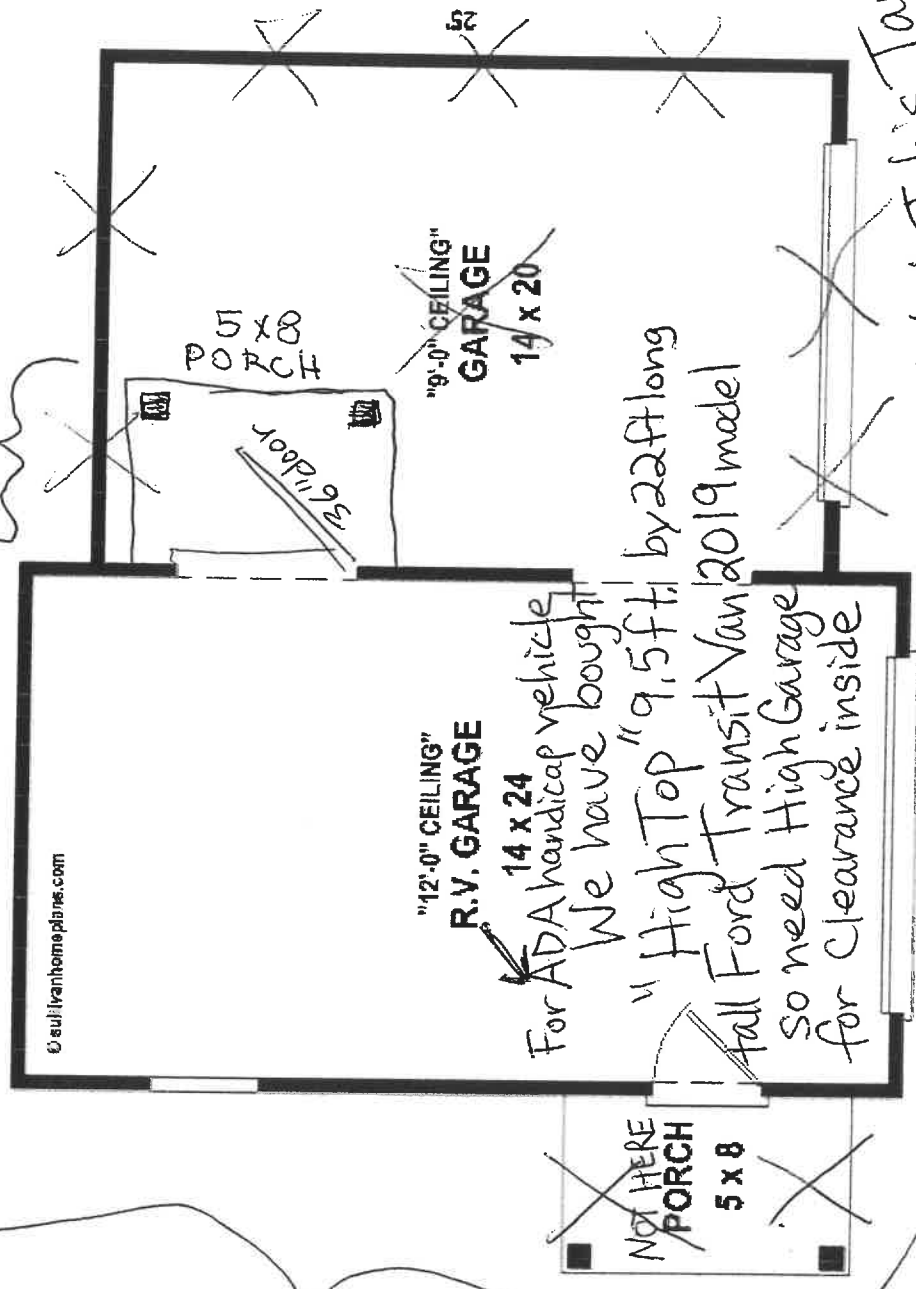 © sullivanhomeplans.com
25'
5 x 8
PORCH
36" door
"9'-0" CEILING"
GARAGE
14 x 20
"12'-0" CEILING"
R.V. GARAGE
14 x 24
For ADA handicap vehicle
We have bought
"High Top" 9.5ft. by 22ft long
tall Ford Transit Van 2019 model
so need High Garage
for Clearance inside
NOT HERE
PORCH
5 x 8